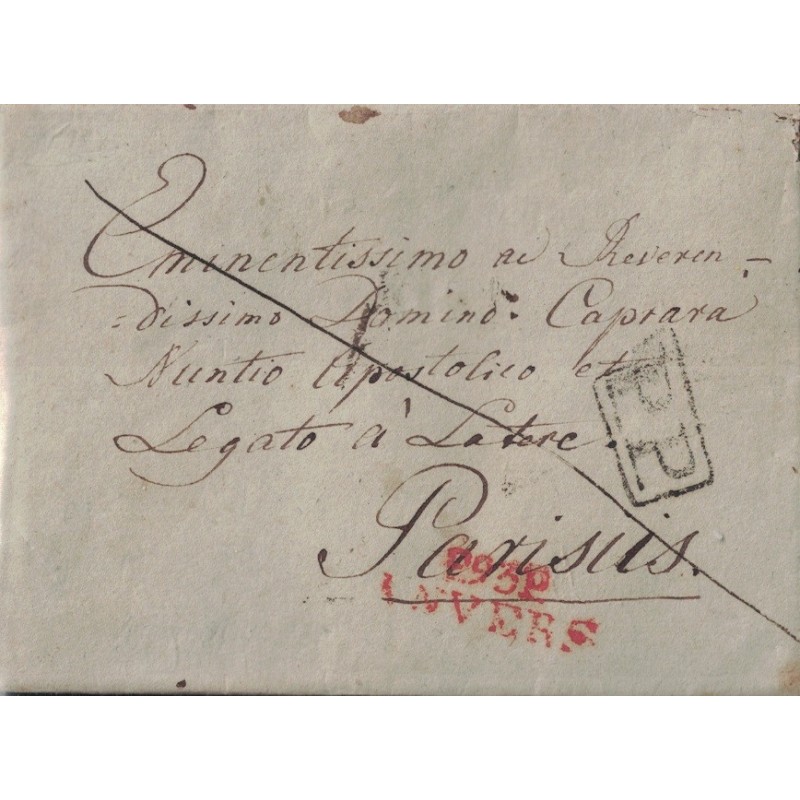 Eminentissimo ac Reveren-
=dissimo Domino. Caprara
Nuntio Apostolico et
Legato à Latere.
Parisiis.
PP
P93P
ANVERS